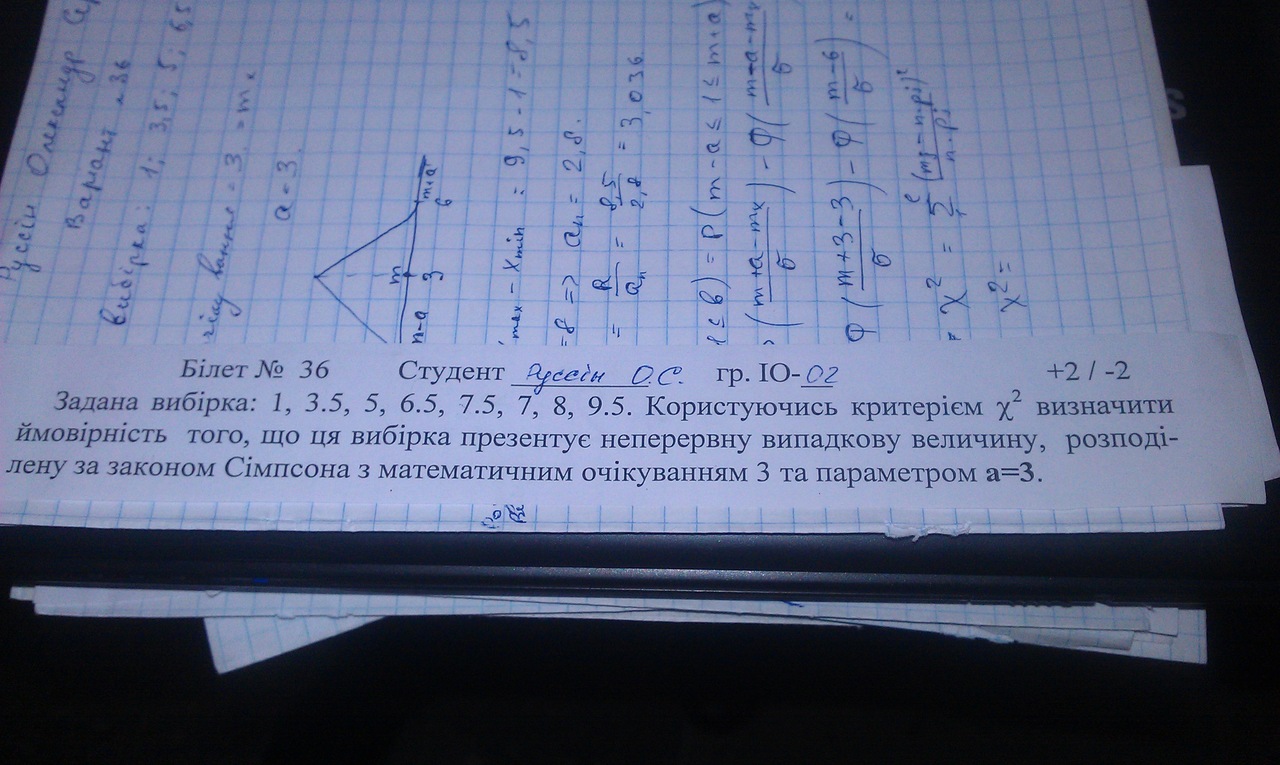 Руссін Олександр Се
Варіант №36
Вибірка: 1; 3,5; 5; 6,5
= 3 = mₓ
a=3.
m
n-a 3 m+a
6
max − Xmin = 9,5-1=8,5
=8 => aₙ = 2,8.
= R/aₙ = 8,5/2,8 = 3,036
1≤b) = P(m-a≤1≤m+a)
(m+a-mₓ/σ) - Φ(m-a-mₓ/σ
Φ(m+3-3/σ) - Φ(m-6/σ) =
χ² = Σ (mᵢ-n·pᵢ)²/n·pᵢ
χ² =
Білет № 36 Студент Руссін О.С. гр. ІО-02 +2 / -2
Задана вибірка: 1, 3.5, 5, 6.5, 7.5, 7, 8, 9.5. Користуючись критерієм χ² визначити
ймовірність того, що ця вибірка презентує неперервну випадкову величину, розподі-
лену за законом Сімпсона з математичним очікуванням 3 та параметром а=3.